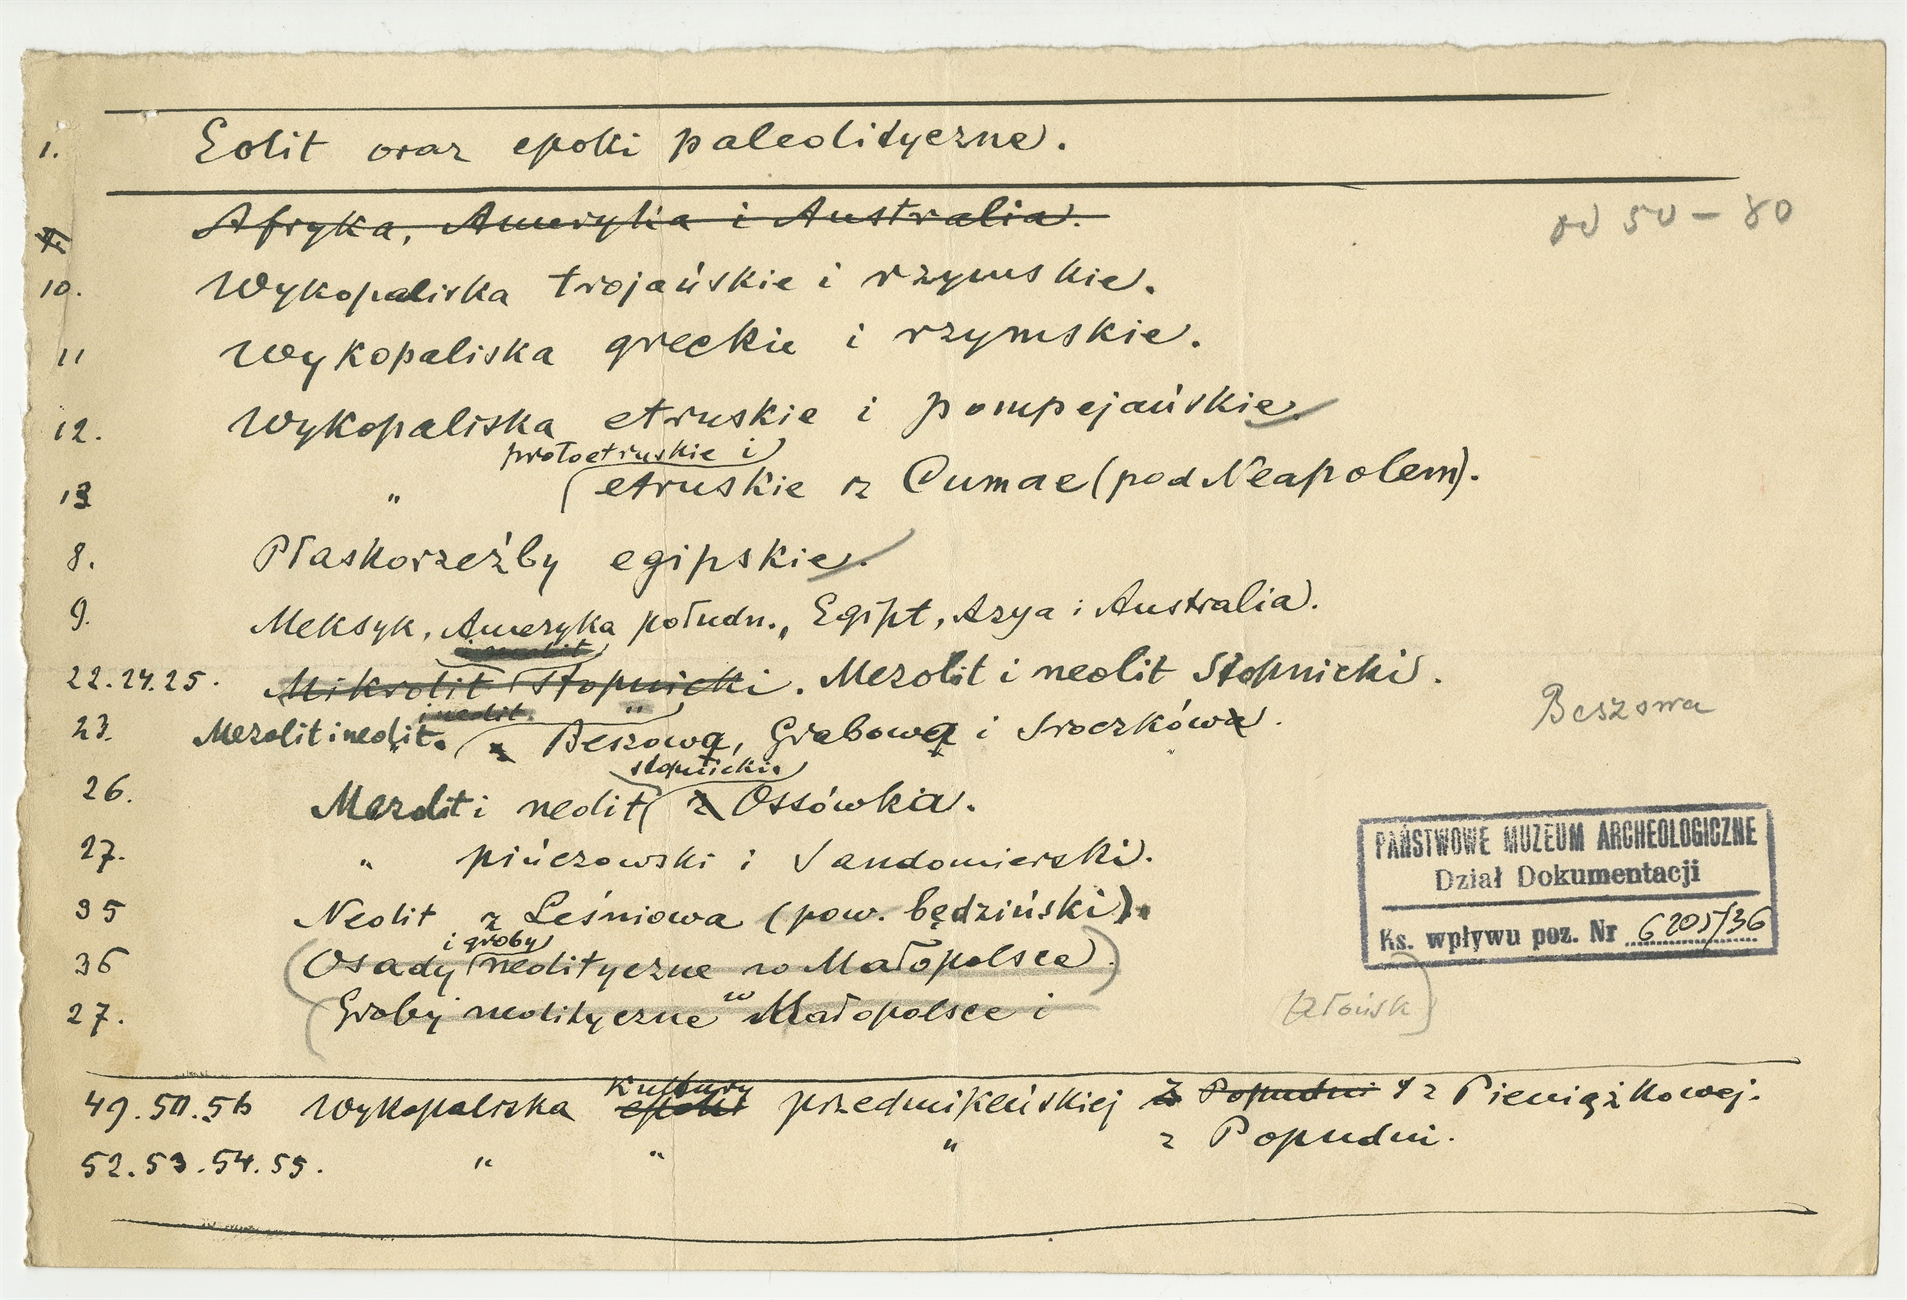 1. Eolit oraz epoki paleolityczne.
Afryka, Ameryka i Australia.
od 50 – 80
10. Wykopaliska trojańskie i rzymskie.
11 Wykopaliska greckie i rzymskie.
12. Wykopaliska etruskie i pompejańskie.
protoetruskie i
13 " etruskie z Cumae (pod Neapolem).
8. Płaskorzeźby egipskie.
9. Meksyk, Ameryka połudn., Egipt, Azya i Australia.
i neolit
22.24.25. Mikrolit Stopnicki. Mezolit i neolit Stopnicki.
i neolit "
23. Mezolit i neolit. z Beszowa, Grabowa i Sroczków.
Beszowa
stopnicki
26. Mezolit i neolit z Ossówka.
27. " pińczowski i Sandomierski.
35 Neolit z Leśniowa (pow. będziński).
i groby
36 Osady neolityczne w Małopolsce.
27. Groby neolityczne w Małopolsce i
(Złońsk)
PAŃSTWOWE MUZEUM ARCHEOLOGICZNE
Dział Dokumentacji
Ks. wpływu poz. Nr 6205/36
kultury
49.50.51 Wykopaliska epoki przedmikeńskiej z Popudni z Pieniążkowej.
52.53.54.55. " " " z Popudni.